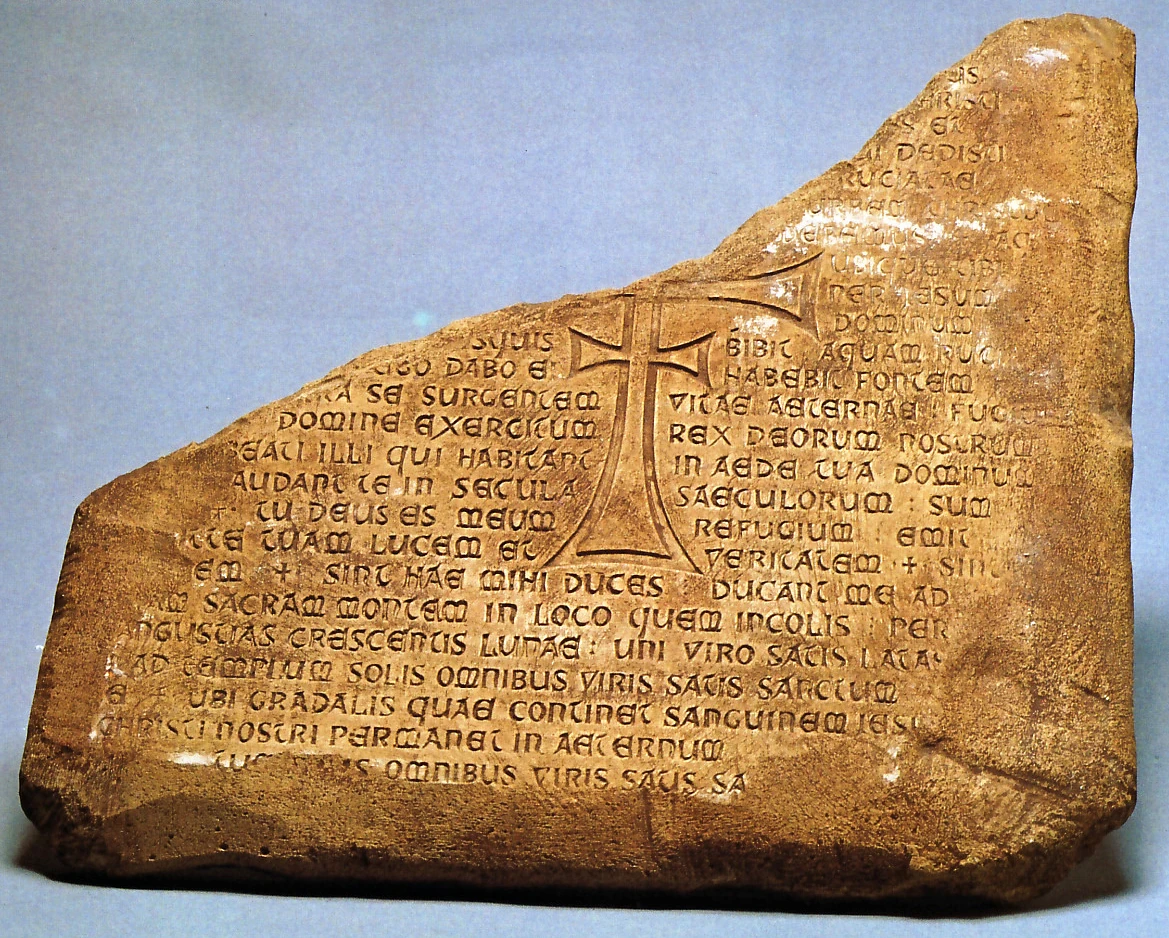 US
RISTI
S ET
I DEDISTI
RUCIATAE
URBEM
DEBAMUS AC
UBIQUE TIBI
PER IESUM
DOMINUM
SQUIS BIBIT AQUAM
EGO DABO EI HABEBIT FONTEM
TA SE SURGENTEM VITAE AETERNAE : FUG
DOMINE EXERCITUUM REX DEORUM NOSTRUM
BEATI ILLI QUI HABITANT IN AEDE TUA DOMINUM
AUDANT TE IN SECULA SAECULORUM : SUM
+ TU DEUS ES MEUM REFUGIUM : EMIT
TTE TUAM LUCEM ET VERITATEM + SINT
EM + SINT HAE MIHI DUCES : DUCANT ME AD
AM SACRAM MONTEM IN LOCO QUEM INCOLIS : PER
NGUSTIAS CRESCENTIS LUNAE : UNI VIRO SATIS LATAS
AD TEMPLUM SOLIS OMNIBUS VIRIS SATIS SANCTUM
E + UBI GRADALIS QUAE CONTINET SANGUINEM IESU
CHRISTI NOSTRI PERMANET IN AETERNUM
OMNIBUS VIRIS SATIS SA